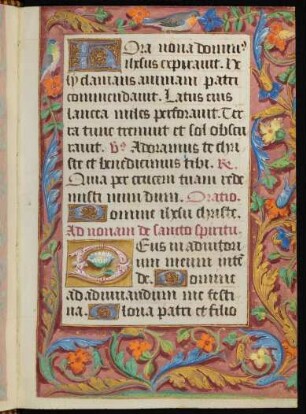 Hora nona dominꝰ
ihesus expirauit. He
ly clamans animam patri
commendauit. Latus eius
lancea miles perforauit. Ter
ra tunc tremuit et sol obscu
rauit. Vs. Adoramus te chri
ste et benedicimus tibi. R.
Quia per crucem tuam rede
misti mundum. Oratio.
Domine ihesu christe.
Ad nonam de sancto spiritu.
Deus in adiutori
um meum intē
de. Domine
ad adiuuandum me festi
na. Gloria patri et filio